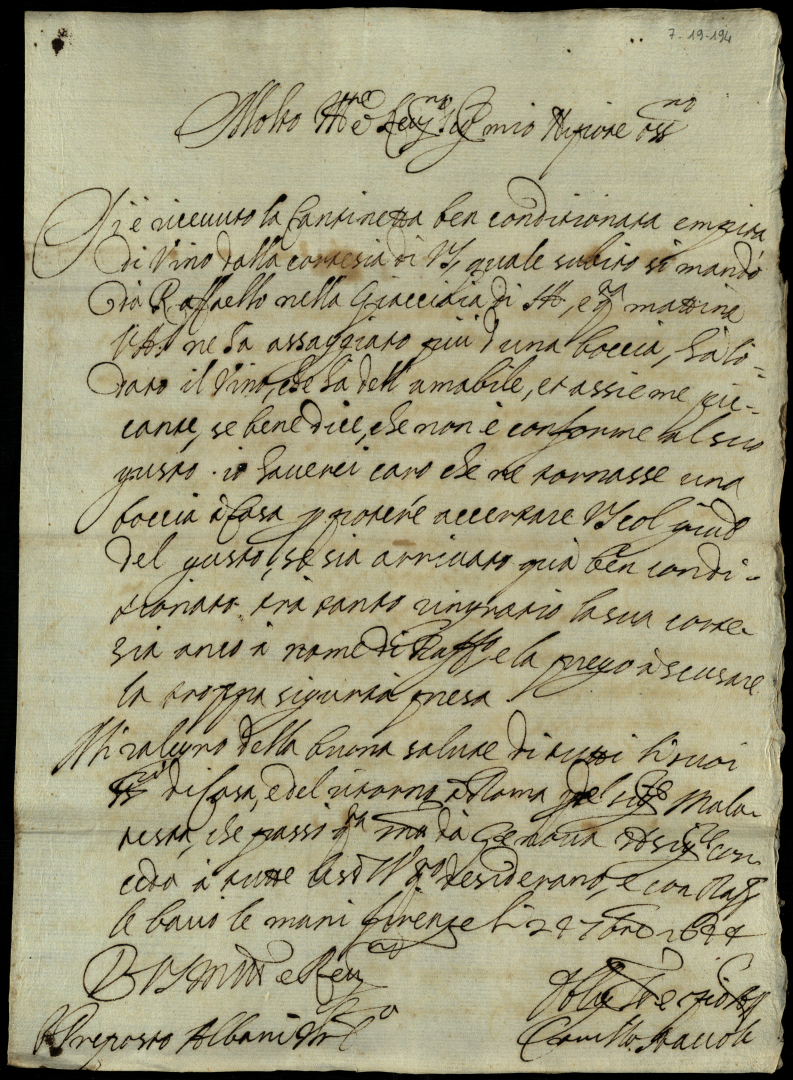 7-19-194
Molto Ill.re e Rev.mo Sig.r mio Sig.nore oss.mo
Si è riceuuto la Cantinetta ben conditionata empita
di Vino dalla cortesia di VS, quale subito si mandò
da Raffaello nella Giacciaia di SA, e q.ta mattina
l'A.S. ne ha assaggiato più d'una boccia, hà lo-
dato il Vino, che ha dell'amabile, et assieme pic-
cante, se bene dice, che non è conforme al suo
gusto. io hauerei caro che ne tornasse una
boccia à Casa p potere accertare VS col giud.o
del gusto, se sia arriuato quà ben condi-
tionato. trà tanto ringratio la sua corte-
sia anco à nome di Raff.lo e la prego à scusare
la troppa sigurtà presa.
Mi ralegro della buona salute di tutti li suoi
SS.ri di Casa, e del ritorno à Roma del sig.r Mala-
testa, che passò q.ta
da Genoua
con-
ceda à tutte
desiderano, e con Raff.
le bacio le mani Firenze li 24 7bre 1694
D VS Molto Ill.re e Reu.ma
Preposto Albani
Camillo Staccoli